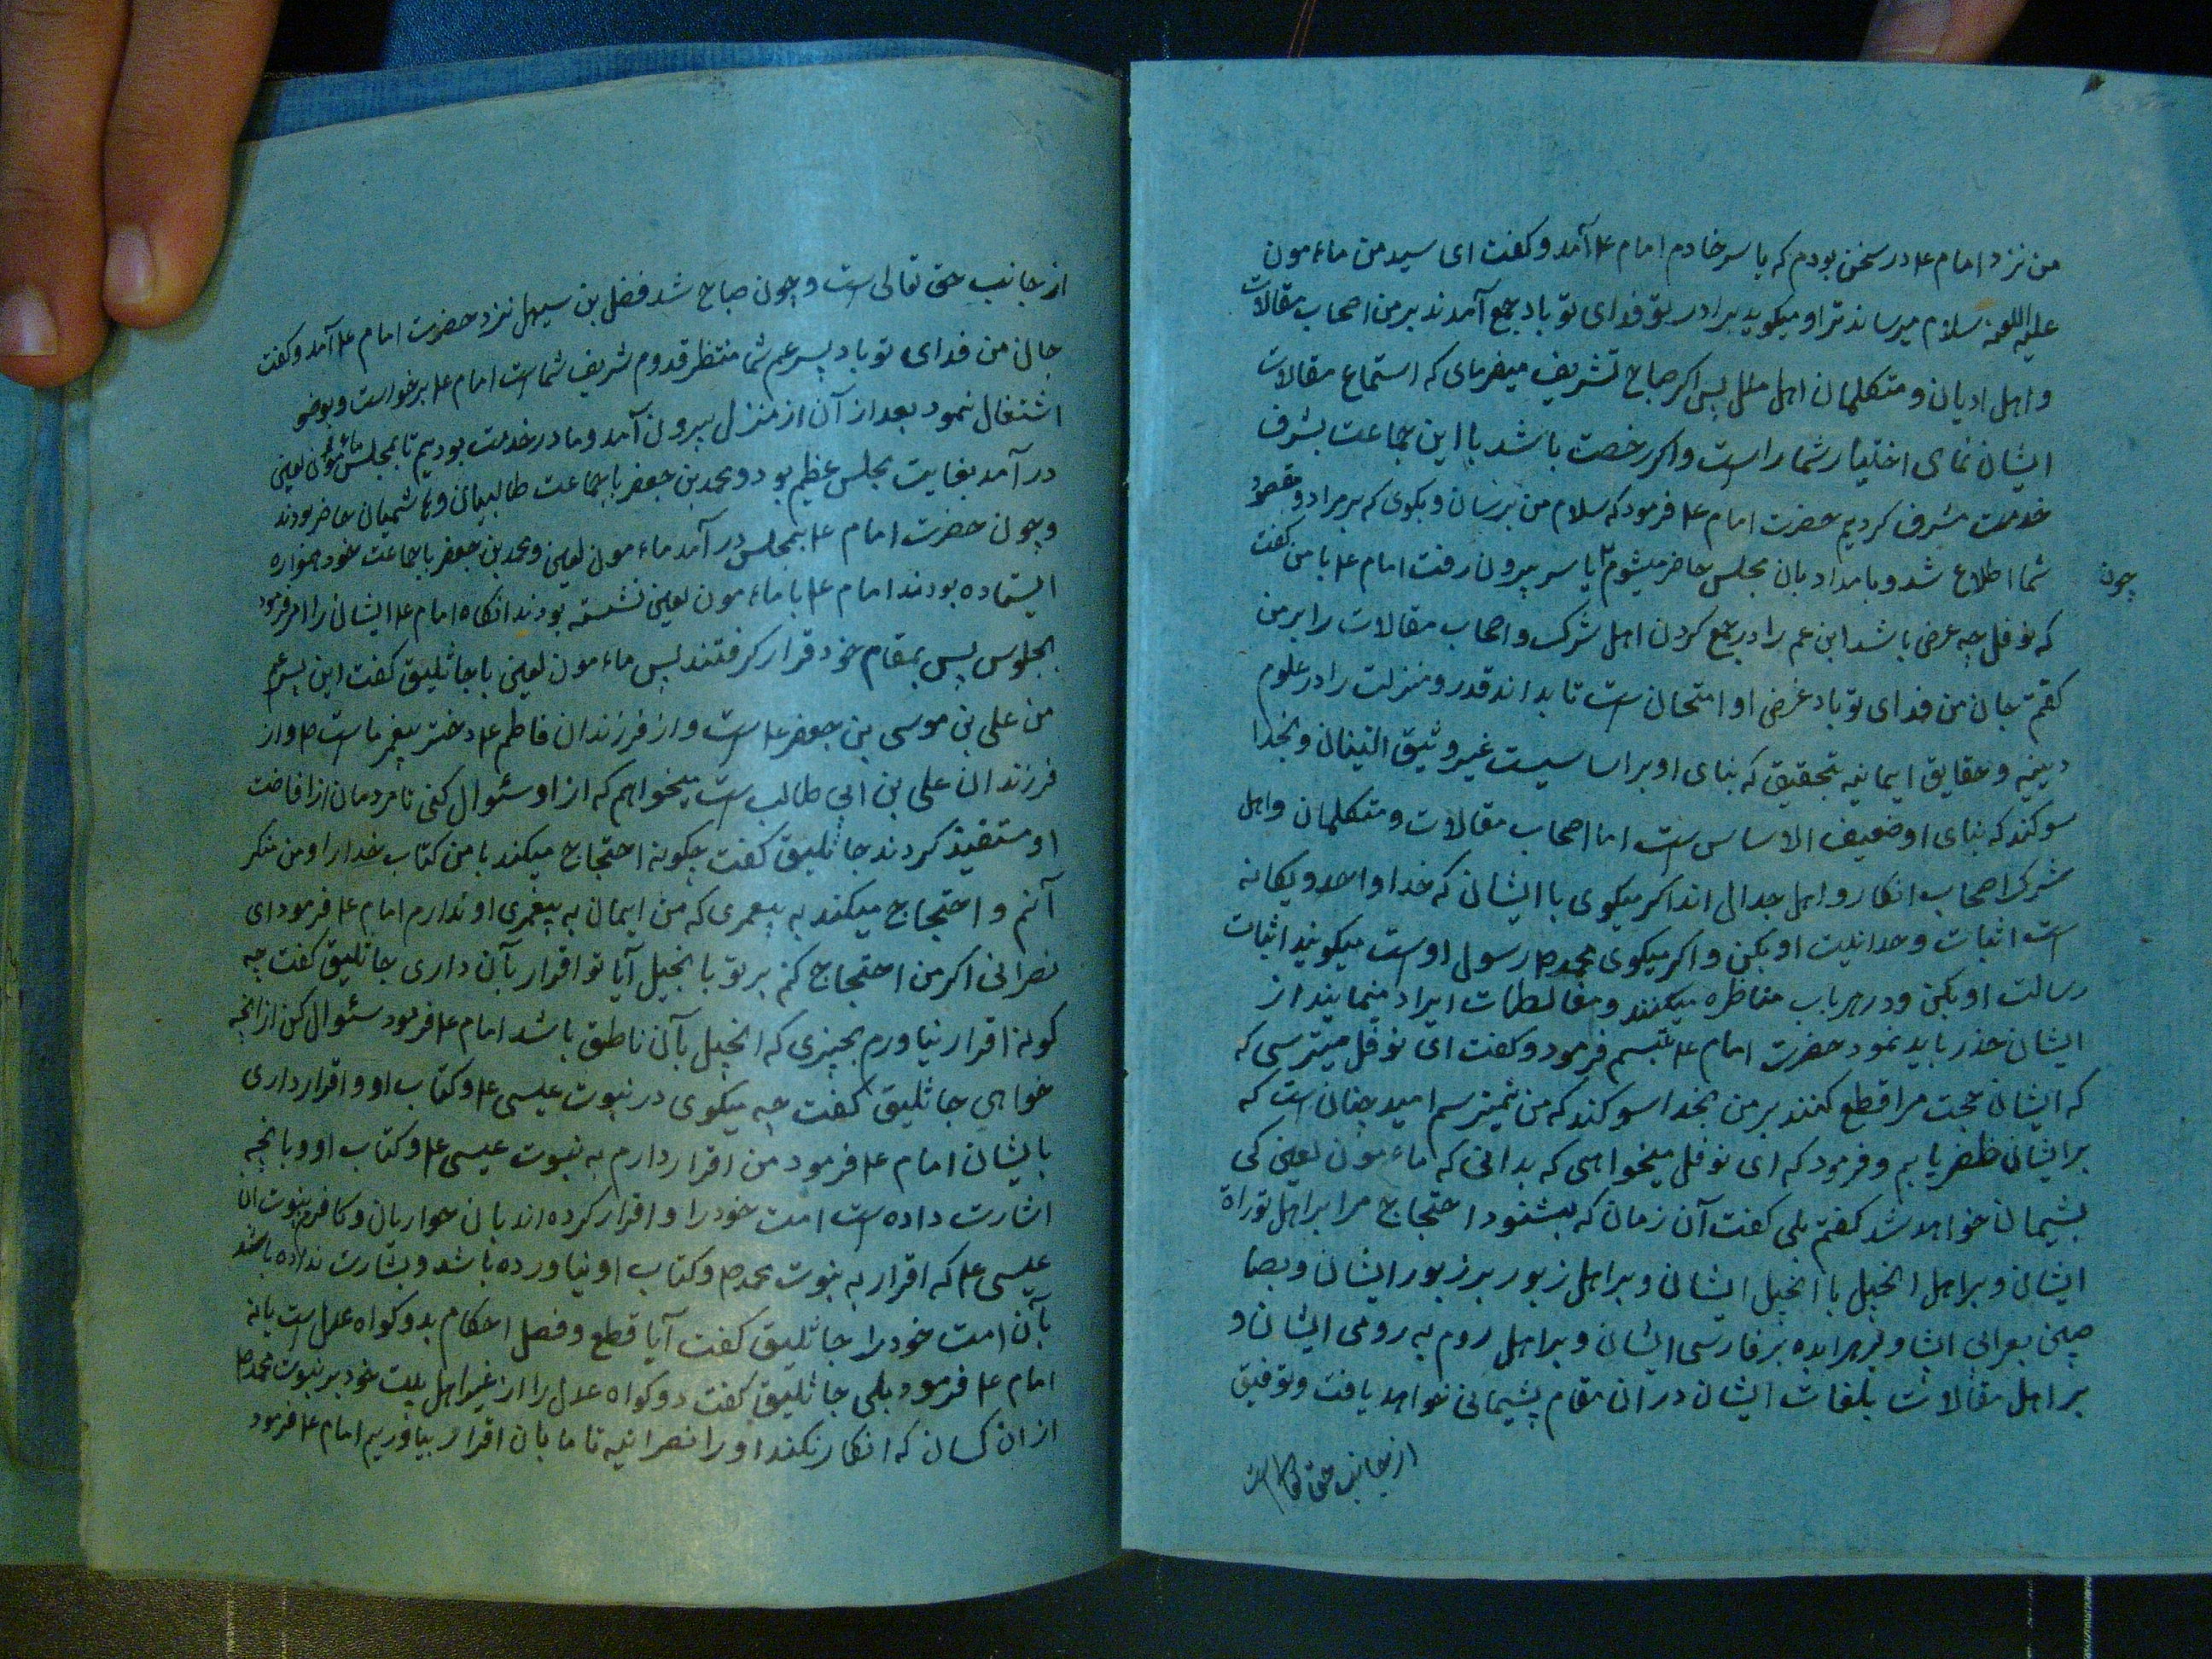 من نزد امام ع در سخن بودم که یاسر خادم امام ع آمد و گفت ای سید من ماءمون
علیه اللعنه سلام میرساند ترا و میکوید برادر تو فدای تو باد جمع آمدند بر من اصحاب مقالات
و اهل ادیان و متکلمان اهل ملل پس اکر صباح تشریف میفرمای که استماع مقالات
ایشان نمای اختیار شما راست و اکر رخصت باشد با این جماعت بشرف
خدمت مشرف کردیم حضرت امام ع فرمود که سلام من برسان و بکوی که بر مراد و مقصود
شما اطلاع شد و بامداد بان مجلس حاضر میشوم یاسر بیرون رفت امام ع با من کفت
چون
که نوفل چه عرض باشد ابن عم را در جمع کردن اهل شرک و اصحاب مقالات را بر من
کفتم جان من فدای تو باد غرض او امتحان است تا بداند قدر و منزلت را در علوم
دینیه و حقایق ایمانیه بتحقیق که بنای او بر اساسیست غیر وثیق البنیان و بخدا
سوکند که بنای او ضعیف الاساس است اما اصحاب مقالات و متکلمان و اهل
شرک اصحاب انکار و اهل جدال اند اکر میکوی با ایشان که خدا واحد و یکانه
است اثبات وحدانیت او بکن و اکر میکوی محمد ص رسول اوست میکویند اثبات
رسالت او بکن و در هر باب مناظره میکنند و مغالطات ایراد مینمایند از
ایشان حذر باید نمود حضرت امام ع تبسم فرمود و کفت ای نوفل میترسی که
که ایشان حجت مرا قطع کنند بر من بخدا سوکند که من نمیترسم امید چنان است که
بر ایشان ظفر یابم و فرمود که ای نوفل میخواهی که بدانی که ماءمون لعین کی
پشیمان خواهد شد کفتم بلی کفت آن زمان که بشنود احتجاج مرا بر اهل توراة
ایشان و بر اهل انجیل با انجیل ایشان و بر اهل زبور بر زبور ایشان و بصا
بیین بعرانی ایشان و بر هرابده بر فارسی ایشان و بر اهل روم به رومی ایشان و
بر اهل مقالات بلغات ایشان در ان مقام پشیمانی خواهد یافت و توفیق
از جانب حق تعالی است
از جانب حق تعالی است و چون صباح شد فضل بن سیهل نزد حضرت امام ع آمد و کفت
جان من فدای تو باد پسر عم شما منتظر قدوم شریف شما است امام ع برخواست و بوضو
اشتغال نمود بعد از آن از منزل بیرون آمد و ما در خدمت بودیم تا بمجلس ماءمون لعین
در آمد بغایت مجلس عظیم بود و محمد بن جعفر با جماعت طالبیان و هاشمیان حاضر بودند
و چون حضرت امام ع بمجلس در آمد ماءمون لعین و محمد بن جعفر با جماعت خود همواره
ایستاده بودند امام ع با ماءمون لعین نشسته بودند انکاه امام ع ایشان را امر فرمود
بجلوس پس بمقام خود قرار کرفتند پس ماءمون لعین با جاثلیق کفت این پسر عم
من علی بن موسی بن جعفر ع است و از فرزندان فاطمه ع دختر پیغمبر ما است ص و از
فرزندان علی بن ابی طالب است میخواهم که از او سئوال کنی تا مردمان از افاضت
او مستفیذ کردند جاثلیق کفت چکونه احتجاج میکند با من کتاب خدا را و من منکر
آنم و احتجاج میکند به پیغمری که من ایمان به پیغمری او ندارم امام ع فرمود ای
نصرانی اکر من احتجاج کنم بر تو با انجیل آیا تو اقرار بآن داری جاثلیق کفت چه
کونه اقرار نیاورم بچیزی که انجیل بآن ناطق باشد امام ع فرمود سئوال کن از انچه
خواهی جاثلیق کفت چه میکوی در نبوت عیسی ع و کتاب او و اقرار داری
بایشان امام ع فرمود من اقرار دارم به نبوت عیسی ع و کتاب او و بانچه
اشارت داده است امت خود را و اقرار کرده اند بان حواریان و کافرم بنبوت ان
عیسی ع که اقرار به نبوت محمد ص و کتاب او نیاورده باشد و بشارت نداده باشد
بآن امت خود را جاثلیق کفت آیا قطع و فصل احکام بدو کواه عدل است یا نه
امام ع فرمود بلی جاثلیق کفت دو کواه عدل را از غیر اهل ملت خود بر نبوت محمد ص
از ان کسان که انکار نکند او را نصرانیه تا ما بان اقرار بیاوریم امام ع فرمود